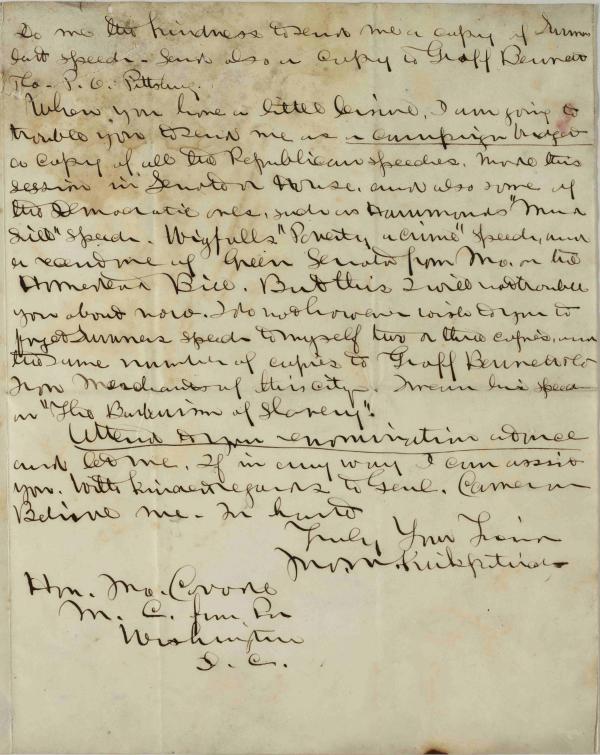 Do me the kindness to send me a copy of Sumners
last speech - Send also a copy to Graff Bennett
P. O. Pittsburg.
When you have a little leisure, I am going to
trouble you to send me as a campaign
a copy of all the Republican speeches, made this
session in Senate or House, and also some of
the Democratic ones, such as Hammonds "Mud
Sill" speech. Wigfalls "Poverty a crime" speech, and
a recent one of Green Senator from Mo. on the
Homestead Bill. But this I will not trouble
you about now. I do not however wish to you to
forget Sumners speech to myself two or three copies, and
the same number of copies to Graff Bennett & Co
Iron Merchants of this city. I mean his speech
on "The Barbarism of Slavery".
Attend to your renomination at once
and let me, if in any way I can assist
you. With kindest regards to Genl. Cameron
Believe me. In haste
Truly Your Friend
Kirkpatrick
Hon. Jno. Covode
M. C. from Pa
Washington
D. C.